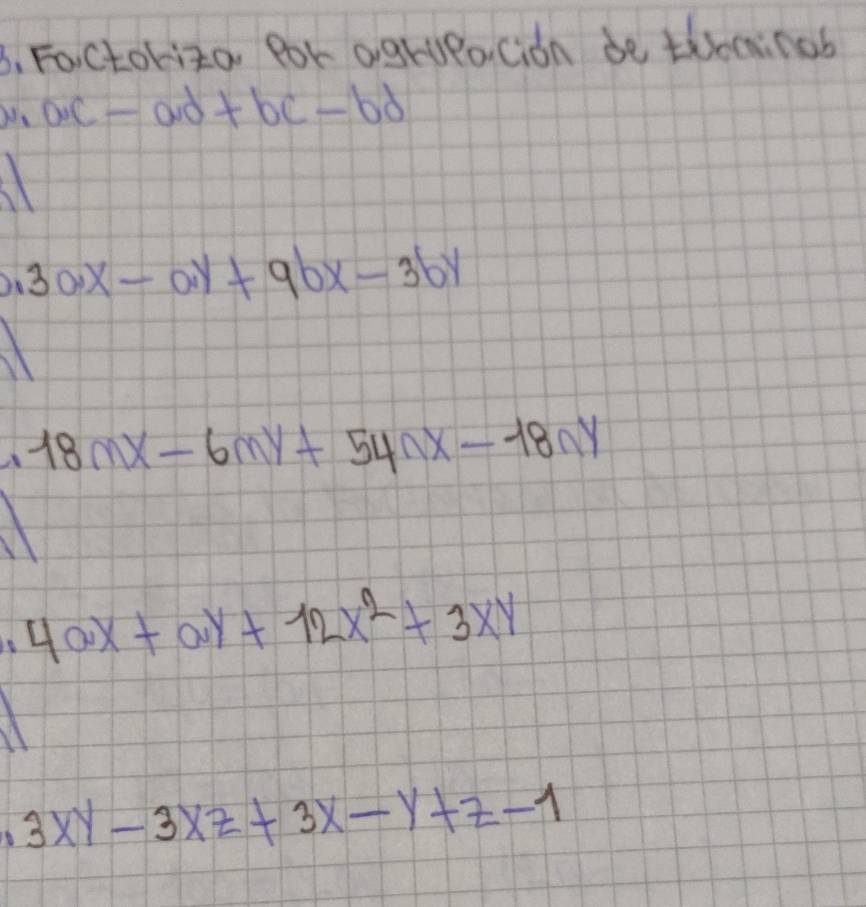 3. Factoriza Por agrupación de términos
a. ac - ad + bc - bd
b. 3ax - ay + 9bx - 3by
. 18mx - 6my + 54nx - 18ny
. 4ax + ay + 12x² + 3xy
. 3xy - 3xz + 3x - y + z - 1